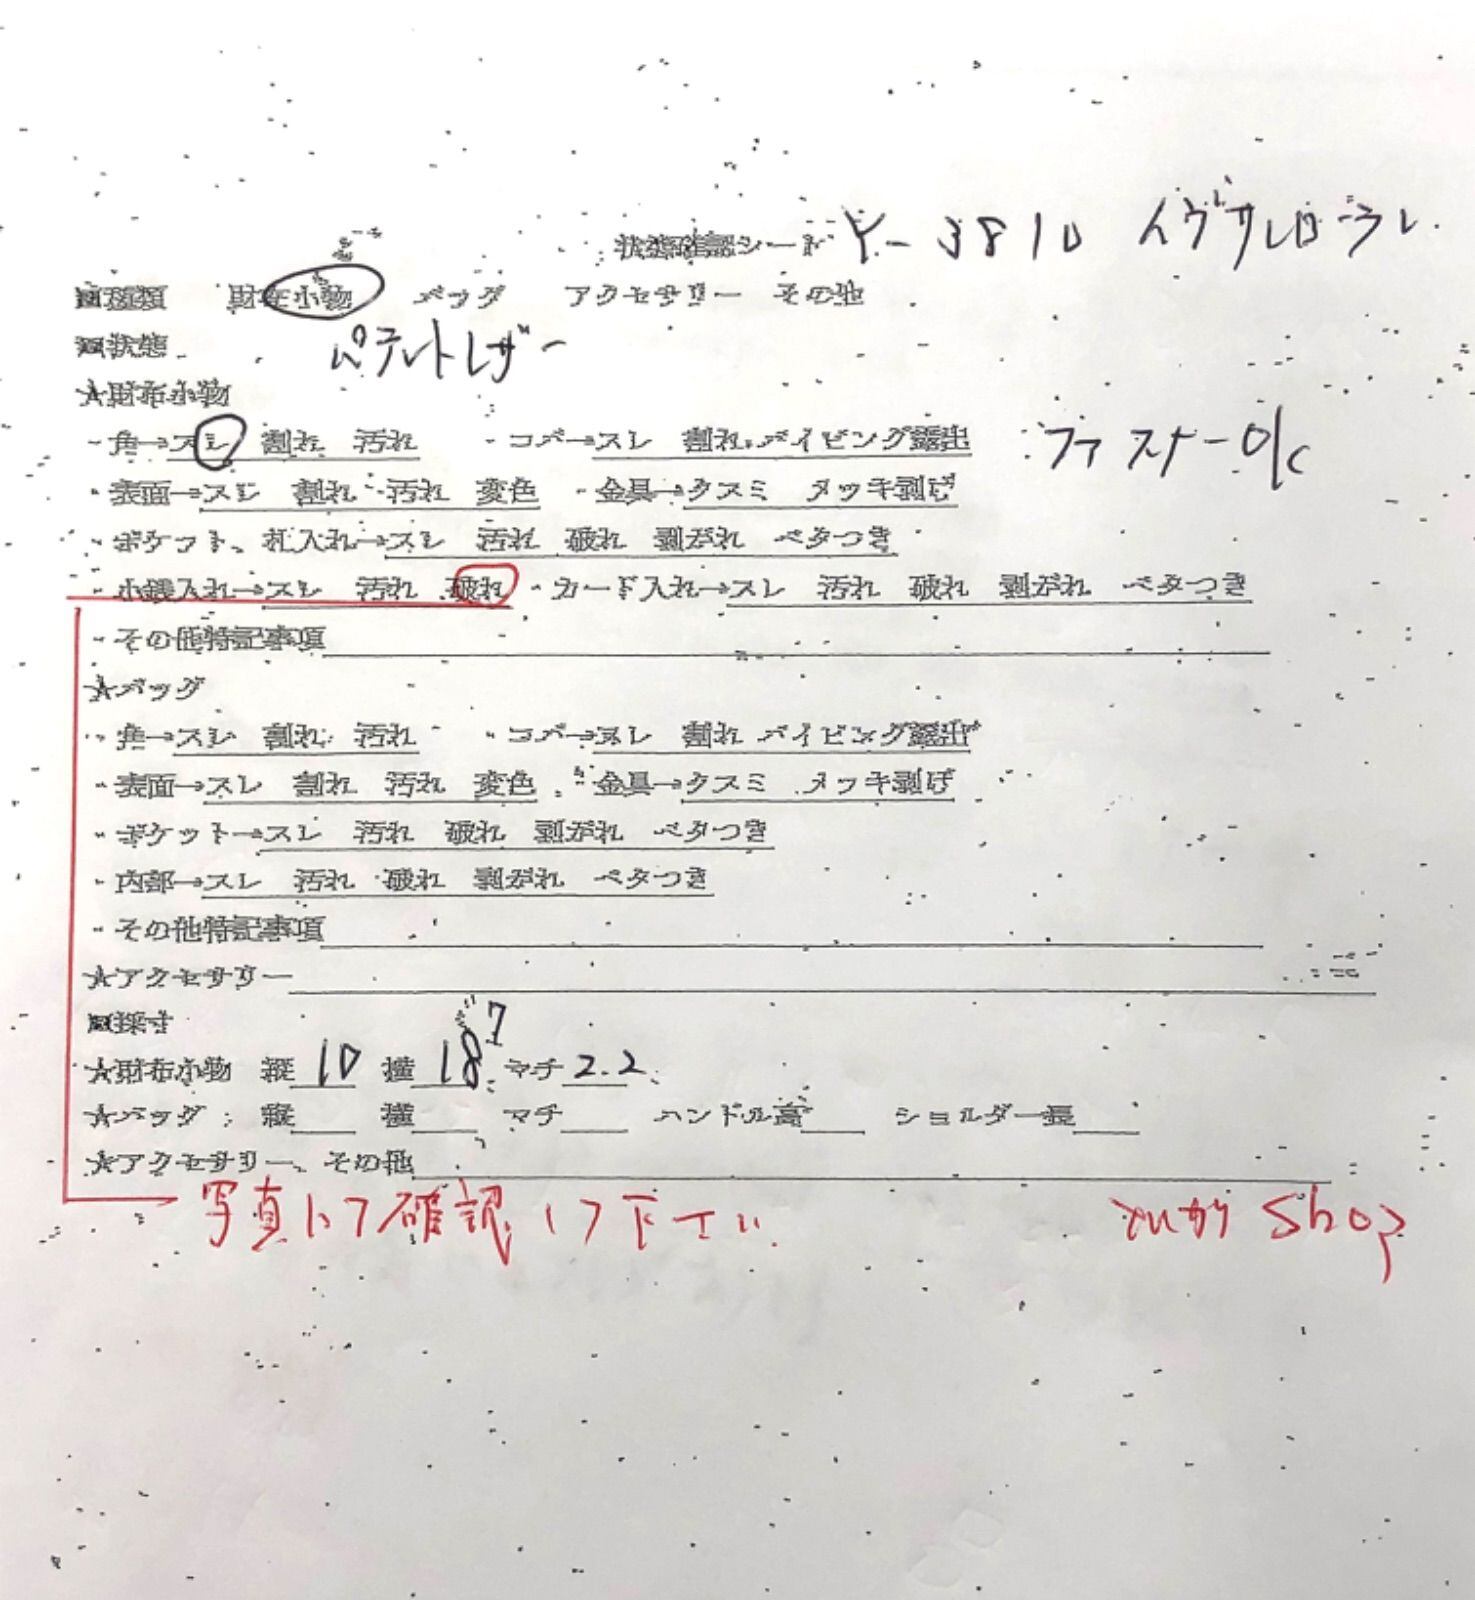 状態確認シート Y-3810 イヴサンローラン
■種類 財布小物 バッグ アクセサリー その他
■状態 パテントレザー
★財布小物
・角→スレ 割れ 汚れ ・コバ→スレ 割れ パイピング露出 ファスナーok
・表面→スレ 割れ 汚れ 変色 ・金具→クスミ メッキ剥げ
・ポケット、札入れ→スレ 汚れ 破れ 剥がれ ベタつき
・小銭入れ→スレ 汚れ 破れ ・カード入れ→スレ 汚れ 破れ 剥がれ ベタつき
・その他特記事項
★バッグ
・角→スレ 割れ 汚れ ・コバ→スレ 割れ パイピング露出
・表面→スレ 割れ 汚れ 変色 ・金具→クスミ メッキ剥げ
・ポケット→スレ 汚れ 破れ 剥がれ ベタつき
・内部→スレ 汚れ 破れ 剥がれ ベタつき
・その他特記事項
★アクセサリー
■採寸
★財布小物 縦 10 横 18.7 マチ 2.2
★バッグ 縦 横 マチ ハンドル高 ショルダー長
★アクセサリー、その他
写真にて確認して下さい shop